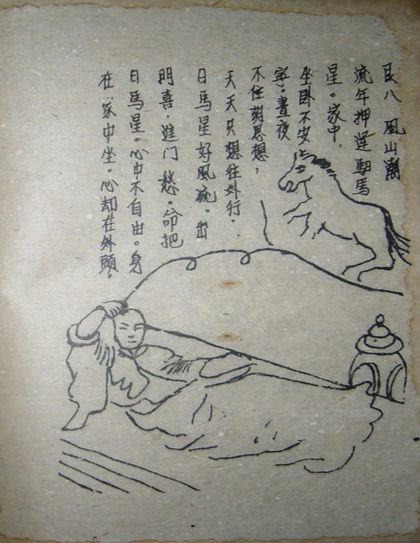 艮八 風山漸
流年押運馹馬
星。家中.
坐卧不安
寧。晝夜
不住刻思想,
天天只想往外行.
日馬星好風流。出
門喜.進门愁。命把
日馬星。心中不自由。身
在.家中坐。心却在外頭。